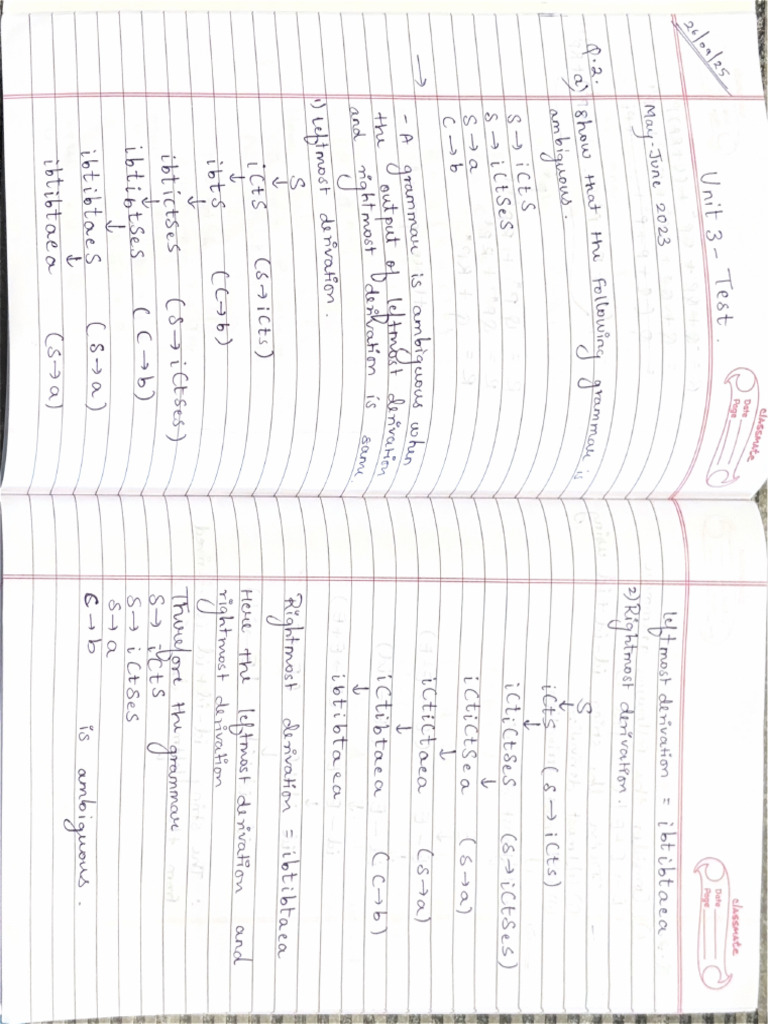 26/09/25
classmate
Date
Page
Unit 3 - Test.
May-June 2023
Q.2.
a) Show that the following grammar is
ambiguous.
S → iCtS
S → iCtSeS
S → a
C → b
→ - A grammar is ambiguous when
the output of leftmost derivation
and rightmost derivation is same
1) Leftmost derivation.
S
↓
iCtS (S→iCtS)
↓
ibtS (C→b)
↓
ibtiCtSeS (S→iCtSeS)
↓
ibtibtSeS (C→b)
↓
ibtibtaeS (S→a)
↓
ibtibtaea (S→a)
classmate
Date
Page
leftmost derivation = ibtibtaea
2) Rightmost derivation.
S
↓
iCtS (S→iCtS)
↓
iCtiCtSeS (S→iCtSeS)
↓
iCtiCtSea (S→a)
↓
iCtiCtaea (S→a)
↓
iCtibtaea (C→b)
↓
ibtibtaea
Rightmost derivation = ibtibtaea
Here the leftmost derivation and
rightmost derivation
Therefore the grammar
S → iCtS
S → iCtSeS
S → a
C → b is ambiguous.